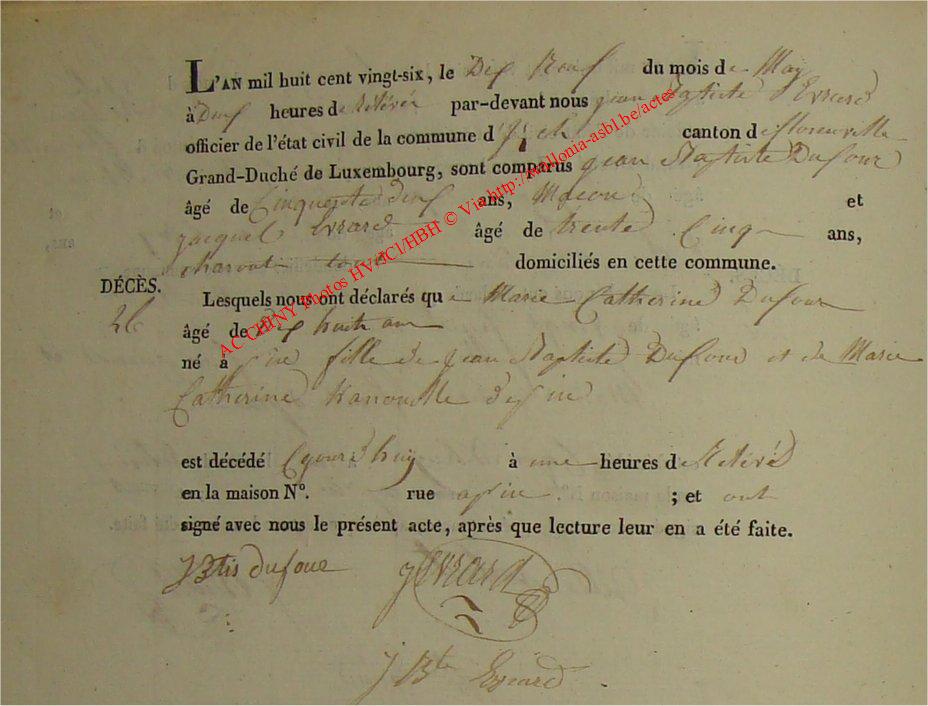 L'AN mil huit cent vingt-six, le Dix Neuf du mois de May
à Deux heures de Relévée par-devant nous jean Baptiste Evrard
officier de l'état civil de la commune d' canton de florenville
Grand-Duché de Luxembourg, sont comparus jean Baptiste Dufour
âgé de Cinquente deux ans, Macon et
jacques Evrard âgé de trente Cinq ans,
domiciliés en cette commune.
DÉCÈS.
26
Lesquels nous ont déclarés que Marie Catherine Dufour
âgé de Dix huit an
né à fille de jean Baptiste Dufour et de Marie
Catherine
est décédé à une heures de Relévée
en la maison N°. rue ; et ont
signé avec nous le présent acte, après que lecture leur en a été faite.
J Btis dufour J Evrard
J Bte Evrard
AC CHINY Photos HV/JCl/HBH © Via http://wallonia-asbl.be/actes